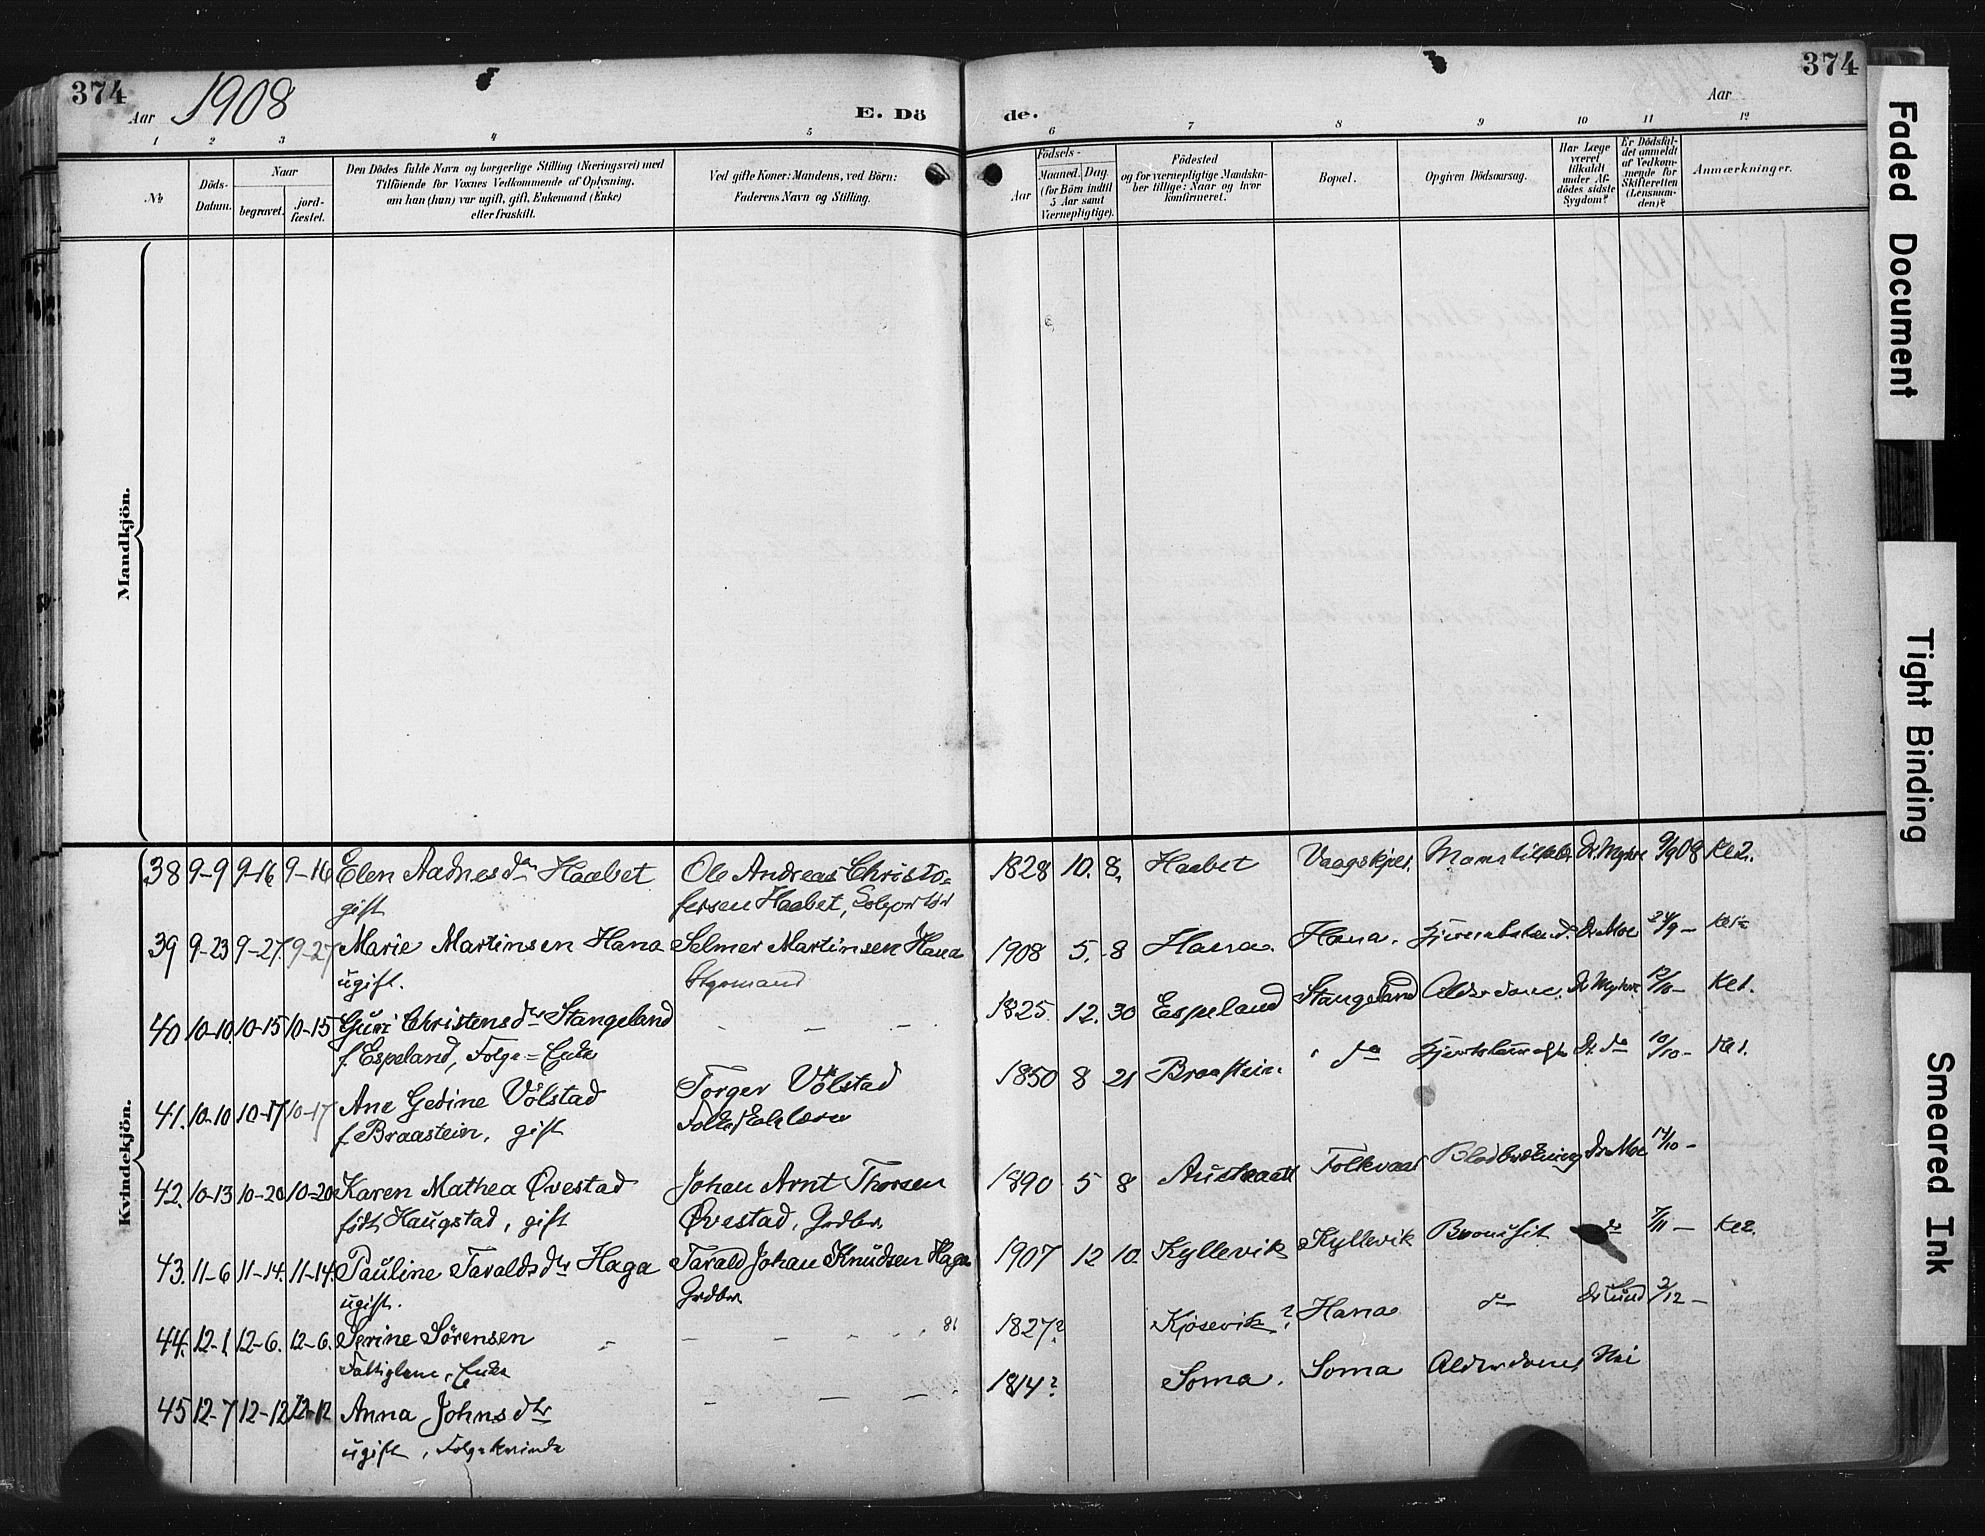 374
374
Aar 1908
E. Dö
de.
Aar
1 2 3 4 5 6 7 8 9 10 11 12
№
Döds-
Datum.
Naar
begravet.
jord-
fæstet.
Den Dödes fulde Navn og borgerlige Stilling (Næringsvei) med
Tilföiende for Voxnes Vedkommende af Oplysning,
om han (hun) var ugift, gift, Enkemand (Enke)
eller fraskilt.
Ved gifte Koner: Mandens, ved Börn:
Faderens Navn og Stilling.
Födsels-
Aar
Maaned. Dag.
(for Börn indtil
5 Aar samt
Værnepligtige).
Födested
og for værnepligtige Mandska-
ber tillige: Naar og hvor
konfirmeret.
Bopæl.
Opgiven Dödsaarsag.
Har Læge
været
tilkaldt
under Af-
dödes sidste
Sygdom?
Er Dödsfal-
det anmeldt
af Vedkom-
mende for
Skifteretten
(Lensman-
den)?
Anmærkninger.
Mandkjön.
Kvindekjön.
38 9-9 9-16 9-16 Elen Aadnesdtr Haabet Ole Andreas Christo= 1828 10. 8. Haabet Vaagskjær. Dr. Myhre 9/9 08 Kl 2.
gift fersen Haabet,
39 9-23 9-27. 9-27 Marie Martinsen Hana Selmer Martinsen Hana 1908 5. 8 Hana. Hana. Dr Moe 24/9 –
ugift. Styrmand
40 10-10. 10-15 10-15 Guri Christensdtr Stangeland – – – 1825. 12. 30 Espeland Stangeland Alderdom. Dr Myhre 12/10 – Kl 1.
f. Espeland, Folge = Enke
41. 10-10 10-17 10-17 Ane Gedine Völstad Torger Völstad 1850 8 21 Braastein. do Dr. do 10/10 – Kl 1.
f Braastein, gift
42. 10-13 10-20 10-20 Karen Mathea Øvestad Johan Arnt Thorsen 1890 5 8 Austraatt Folkvaar Dr Moe 14/10 –
født Haugstad, gift Øvestad, Grdbr.
43. 11-6 11-14. 11-14. Pauline Taraldsdtr Haga Tarald Johan Knudsen Haga 1907 12 10. Kyllevik Kyllevik Bronchit do 7/11 – Kl 2.
ugift. Grdbr
44. 12-1 12-6. 12-6. Serine Sörensen – – – – 81 1827? Kjosevik? Hana do Dr Lund 2/12 –
Fattiglem, Enke
45 12-7 12-12 12-12 Anna Johnsdtr – – – 1814? Soma. Soma Alderdoms Nei
ugift, Folgekvinde
Faded Document
Tight Binding
Smeared Ink